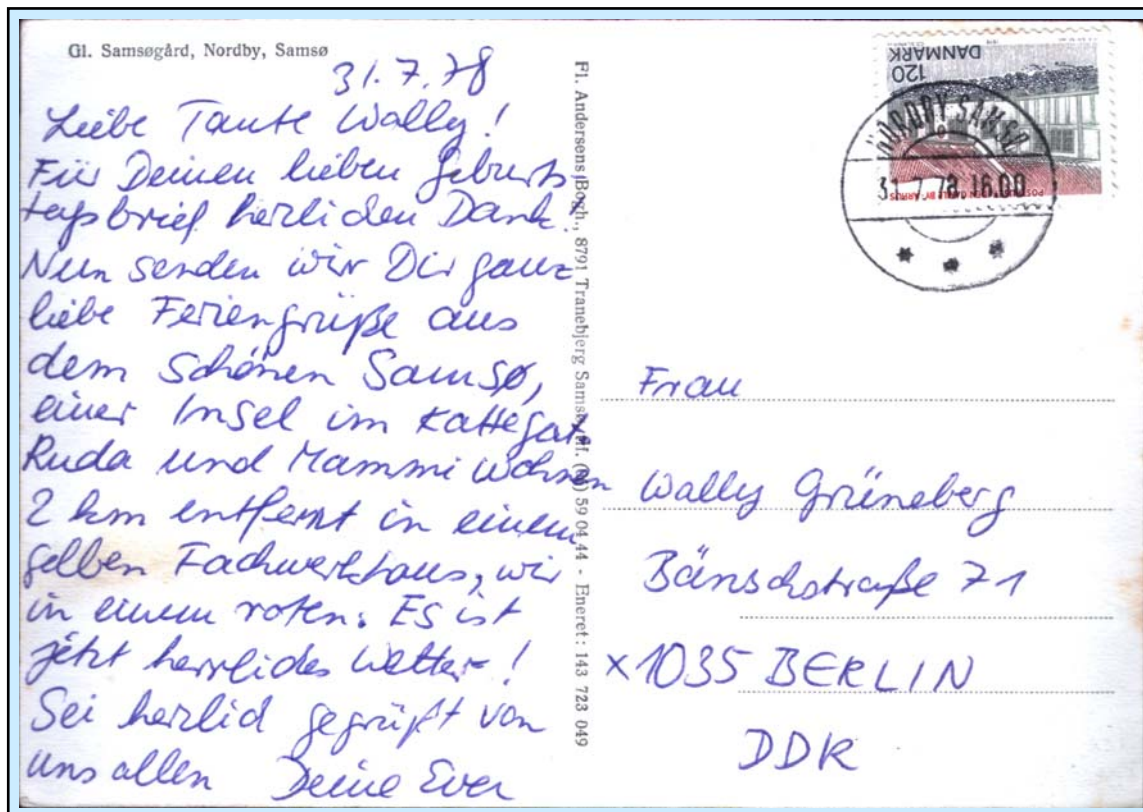 Gl. Samsøgård, Nordby, Samsø
31.7.78
Liebe Tante Wally!
Für Deinen lieben Geburts
tagsbrief herzlichen Dank.
Nun senden wir Dir ganz
liebe Feriengrüße aus
dem schönen Samsø,
einer Insel im Kattegat.
Ruda und Mammi wohnen
2 km entfernt in einem
gelben Fachwerkhaus, wir
in einem roten. Es ist
jetzt herrliches Wetter!
Sei herzlich gegrüßt von
uns allen Deine Ever
Fl. Andersens Bogh., 8791 Tranebjerg Samsø, tlf. (06) 59 04 44 - Eneret: 143 723 049
120
DANMARK
NORDBY SAMSØ
31.7.78.16.00
Frau
Wally Grüneberg
Bänschstraße 71
x1035 BERLIN
DDR